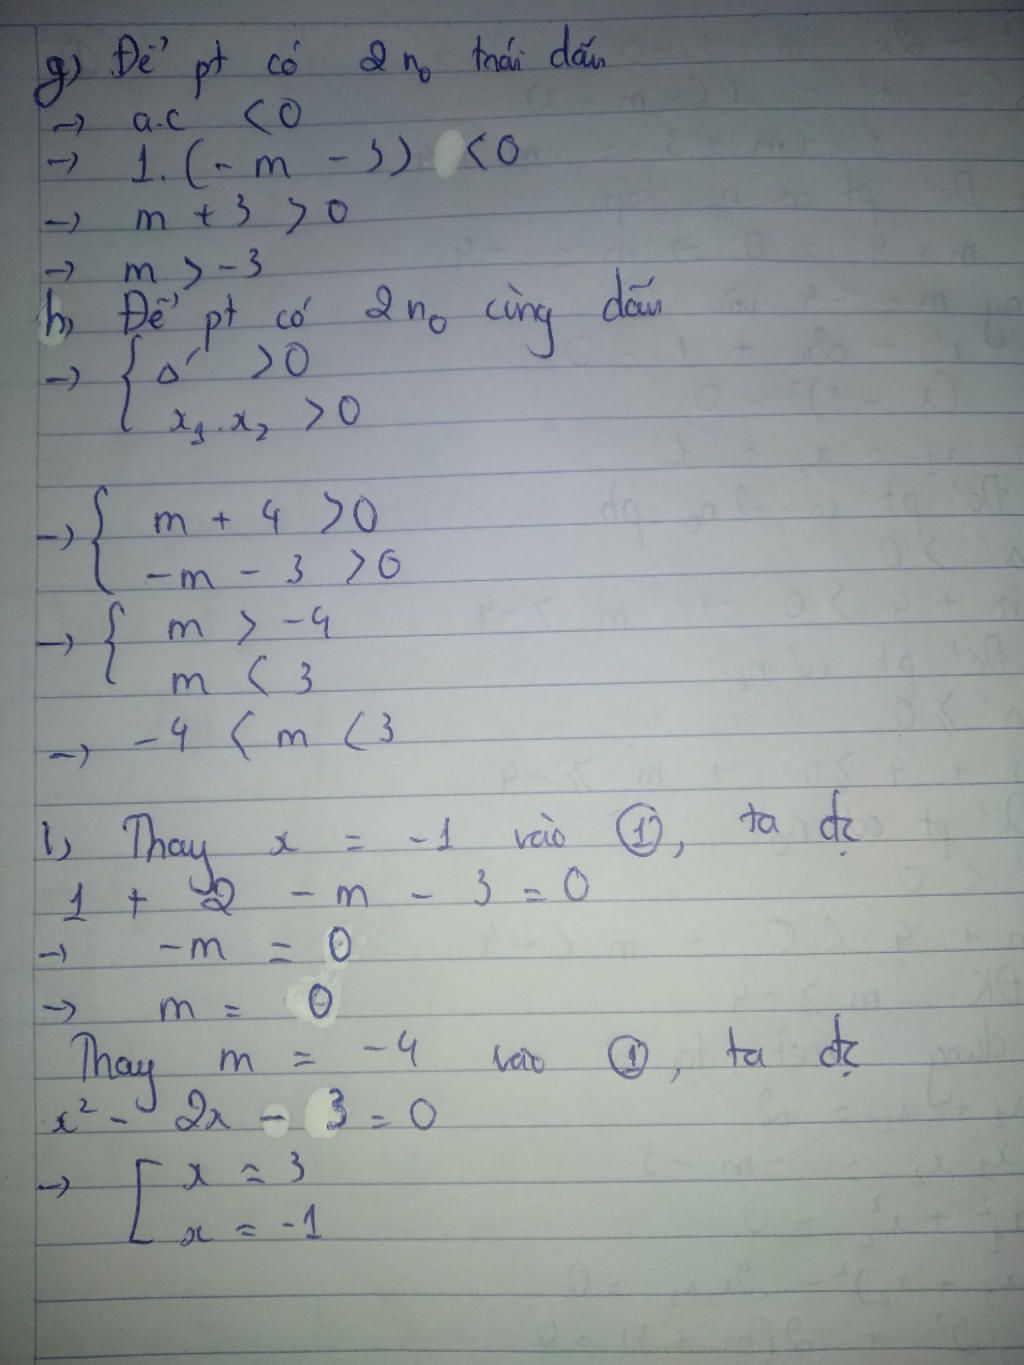 g) Để pt có 2 n₀ trái dấu
→ a.c < 0
→ 1.(-m - 3) < 0
→ m + 3 > 0
→ m > -3
h) Để pt có 2 n₀ cùng dấu
→ { Δ' > 0
x₁.x₂ > 0
→ { m + 4 > 0
-m - 3 > 0
→ { m > -4
m < 3
→ -4 < m < 3
i) Thay x = -1 vào ①, ta đc
1 + 2 - m - 3 = 0
→ -m = 0
→ m = 0
Thay m = -4 vào ①, ta đc
x² - 2x - 3 = 0
→ [ x = 3
x = -1